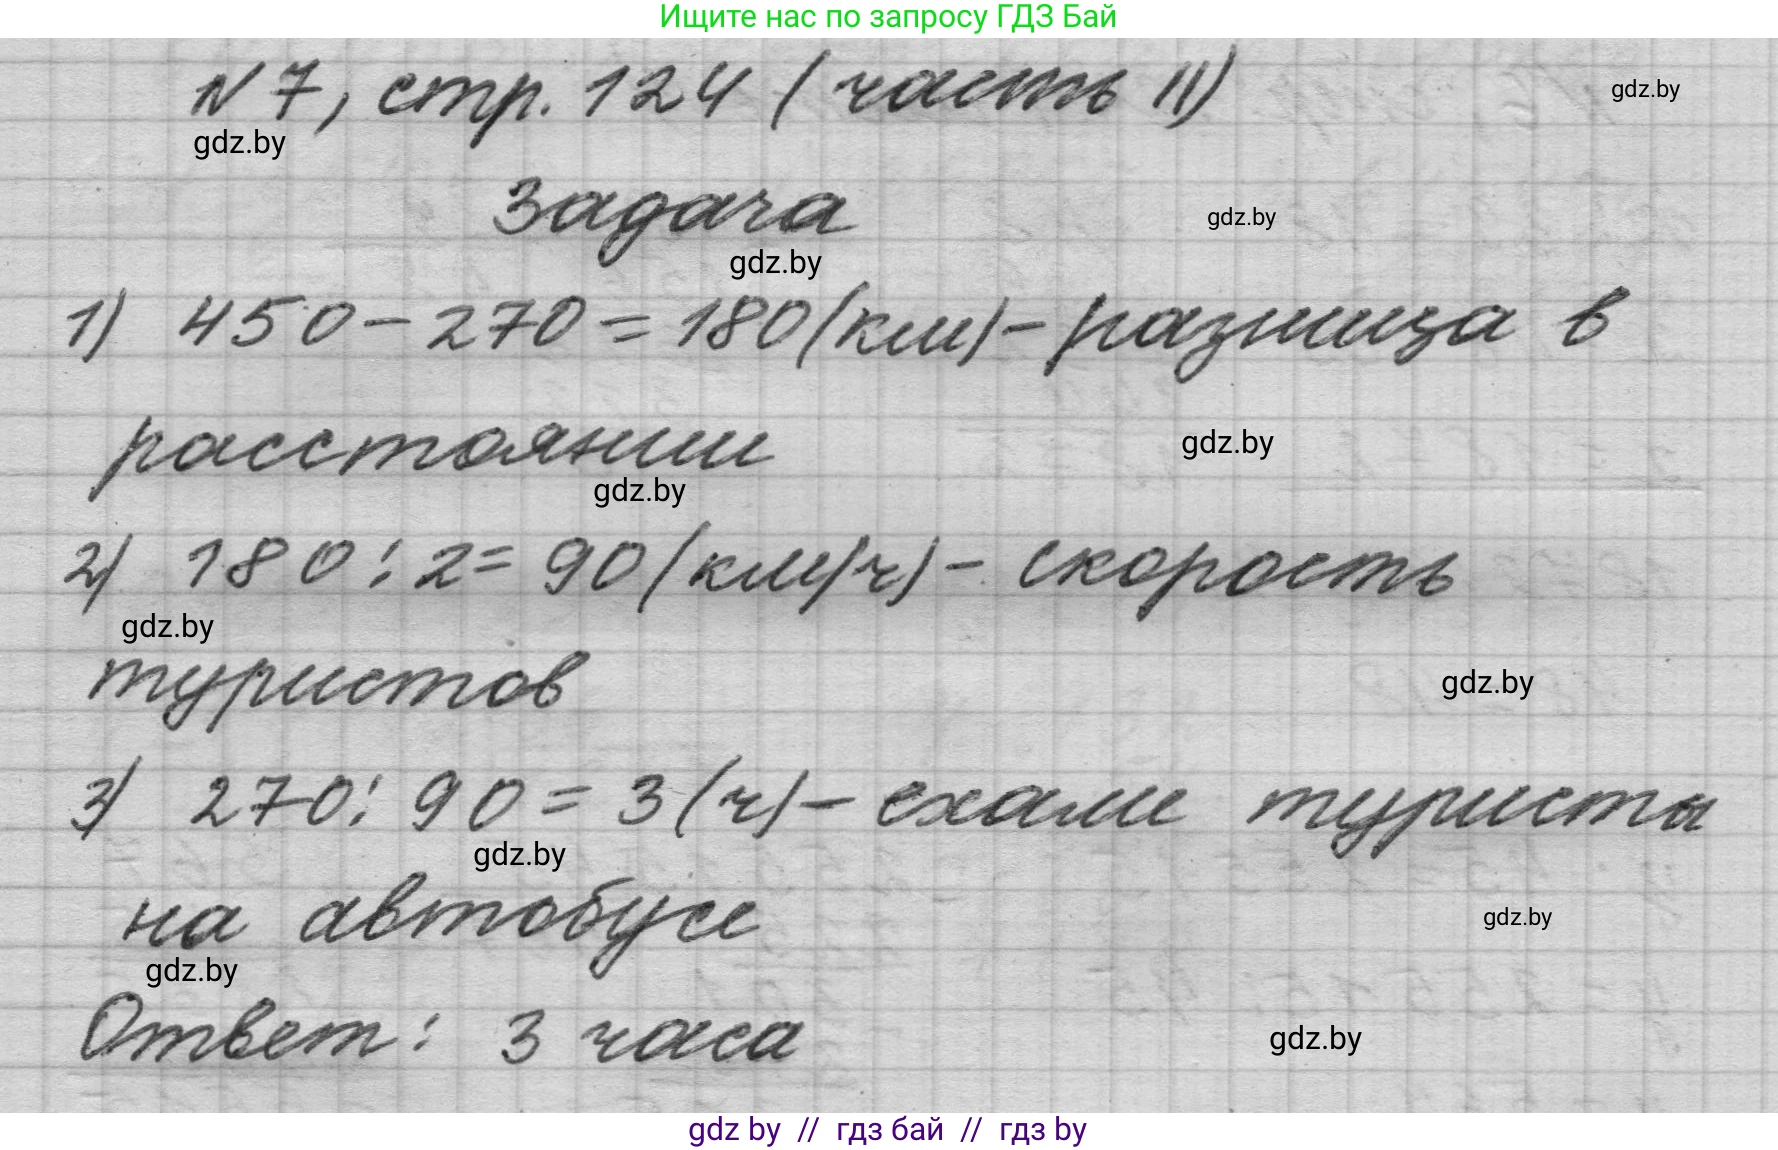 Ищите нас по запросу ГДЗ Бай
№ 7, стр. 124 (часть II)
gdz.by
gdz.by
Задача
gdz.by
gdz.by
1) 450 - 270 = 180 (км) - разница в
расстоянии
gdz.by
gdz.by
2) 180 : 2 = 90 (км/ч) - скорость
gdz.by
туристов
gdz.by
3) 270 : 90 = 3 (ч) - ехали туристы
gdz.by
на автобусе
gdz.by
gdz.by
Ответ: 3 часа
gdz.by
gdz by // гдз бай // гдз by